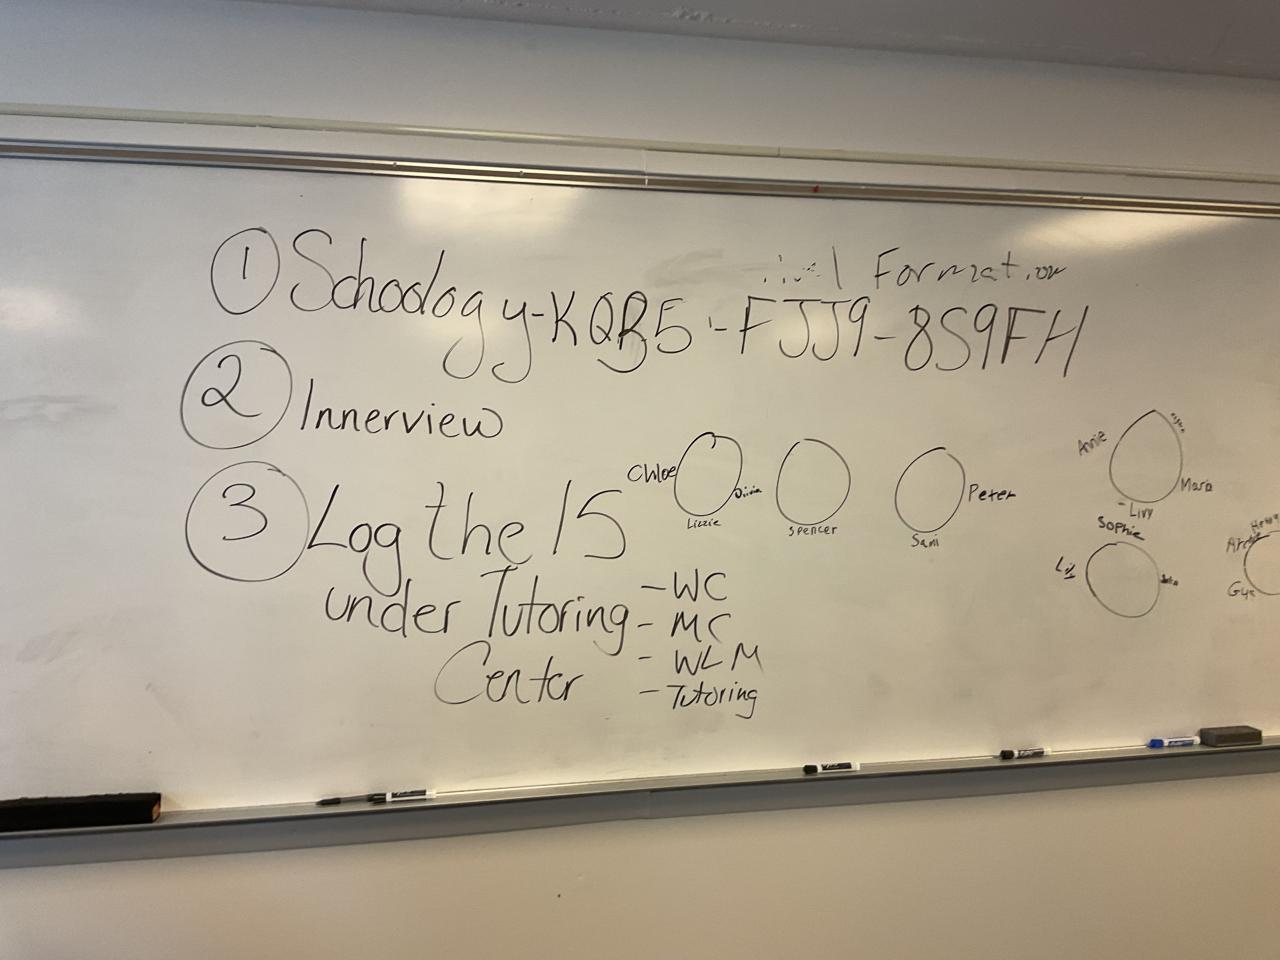 Formation
1 Schoology-KQB5-FJJ9-8S9FH
2 Innerview
3 Log the 15
under Tutoring
Center
- WC
- MC
- WLM
- Tutoring
Chloe
Olivia
Lizzie
Spencer
Peter
Sami
Annie
Maria
- Livy
Sophie
Liz
Gus